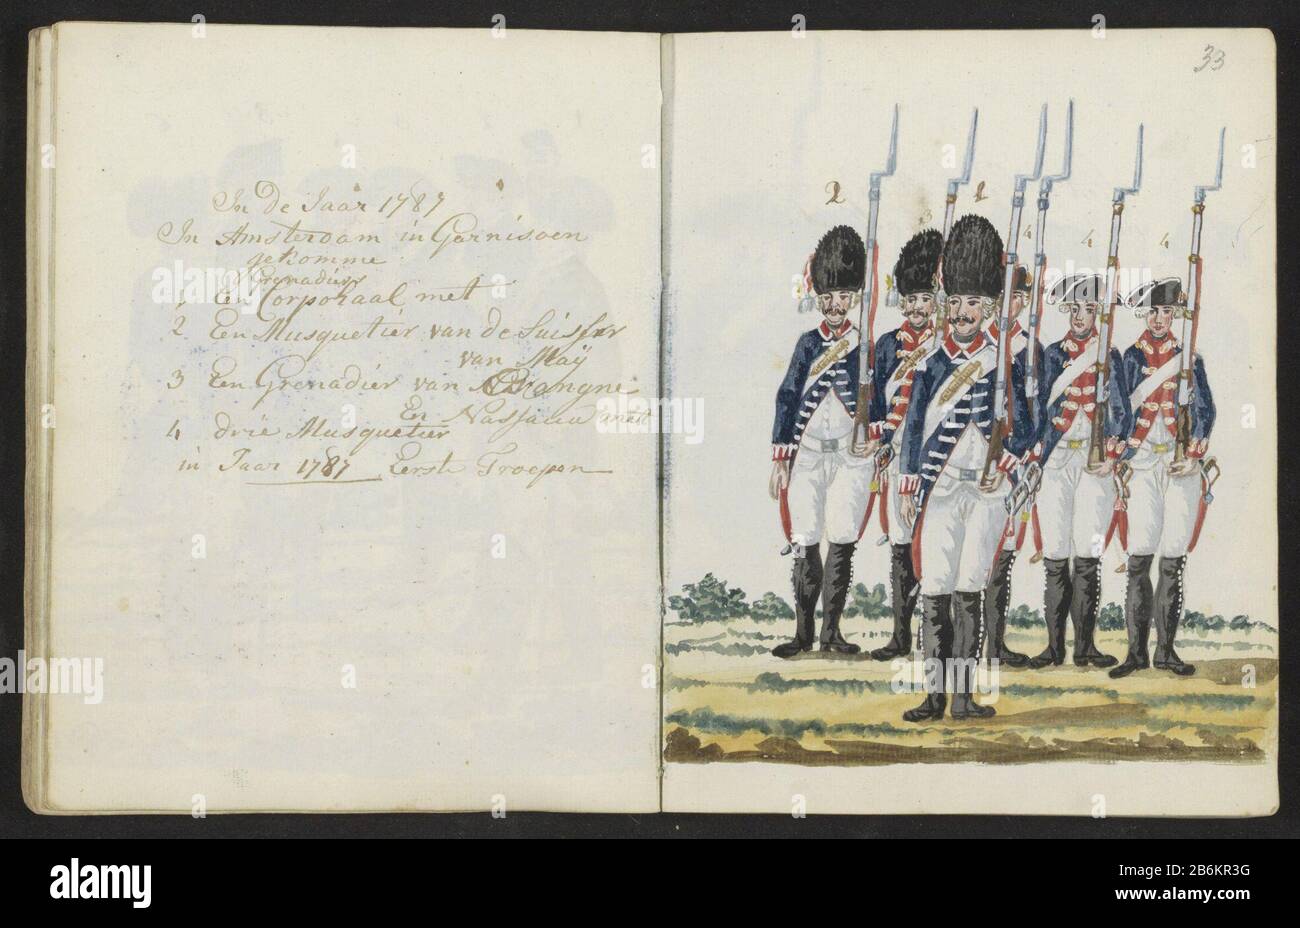 In de Jaar 1787
In Amsterdam in Garnisoen
gekomme
Grenadiers
1 En Corporaal met
2 Een Musquetier van de Suisser
van Maÿ
3 Een Grenadier van Orangne
En Nassauw
4 drie Musquetier
in Jaar 1787 Eerste Troepen
33
2 1
3
4 4 4
alamy
Image ID: 2B6KR3G
www.alamy.com